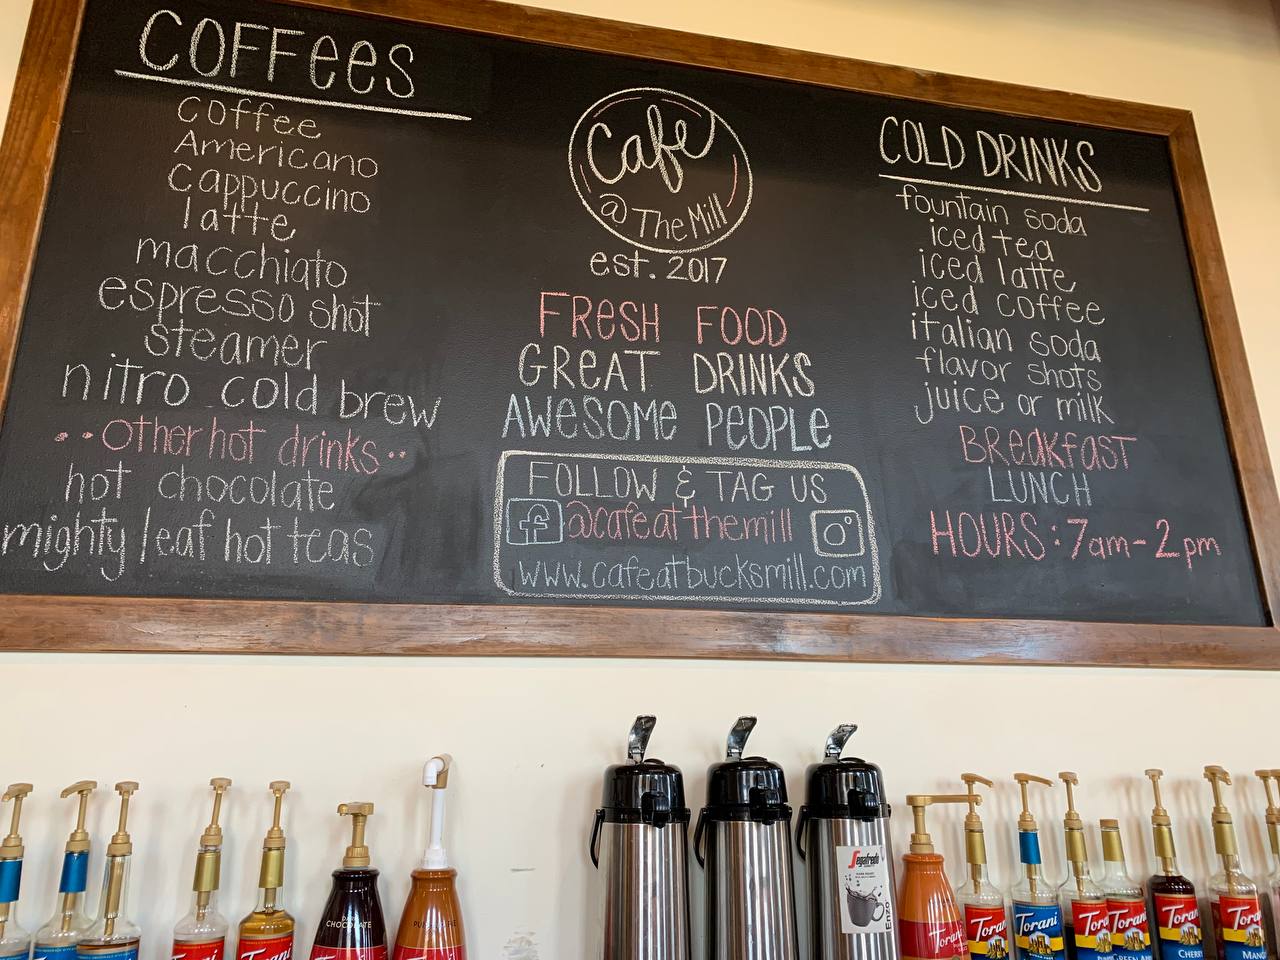 COFFEES
coffee
Americano
cappuccino
latte
macchiato
espresso shot
steamer
nitro cold brew
••other hot drinks••
hot chocolate
mighty leaf hot teas
Cafe
@ The Mill
est. 2017
FRESH FOOD
GREAT DRINKS
AWESOME PEOPLE
FOLLOW & TAG US
f @cafeatthemill
www.cafeatbucksmill.com
COLD DRINKS
fountain soda
iced tea
iced latte
iced coffee
italian soda
flavor shots
juice or milk
BREAKFAST
LUNCH
HOURS: 7am-2pm
DARK
CHOCOLATE
Segafredo
Enzo
Torani
Torani
Torani
Torani
Torani
CHERRY
Torani
MANGO